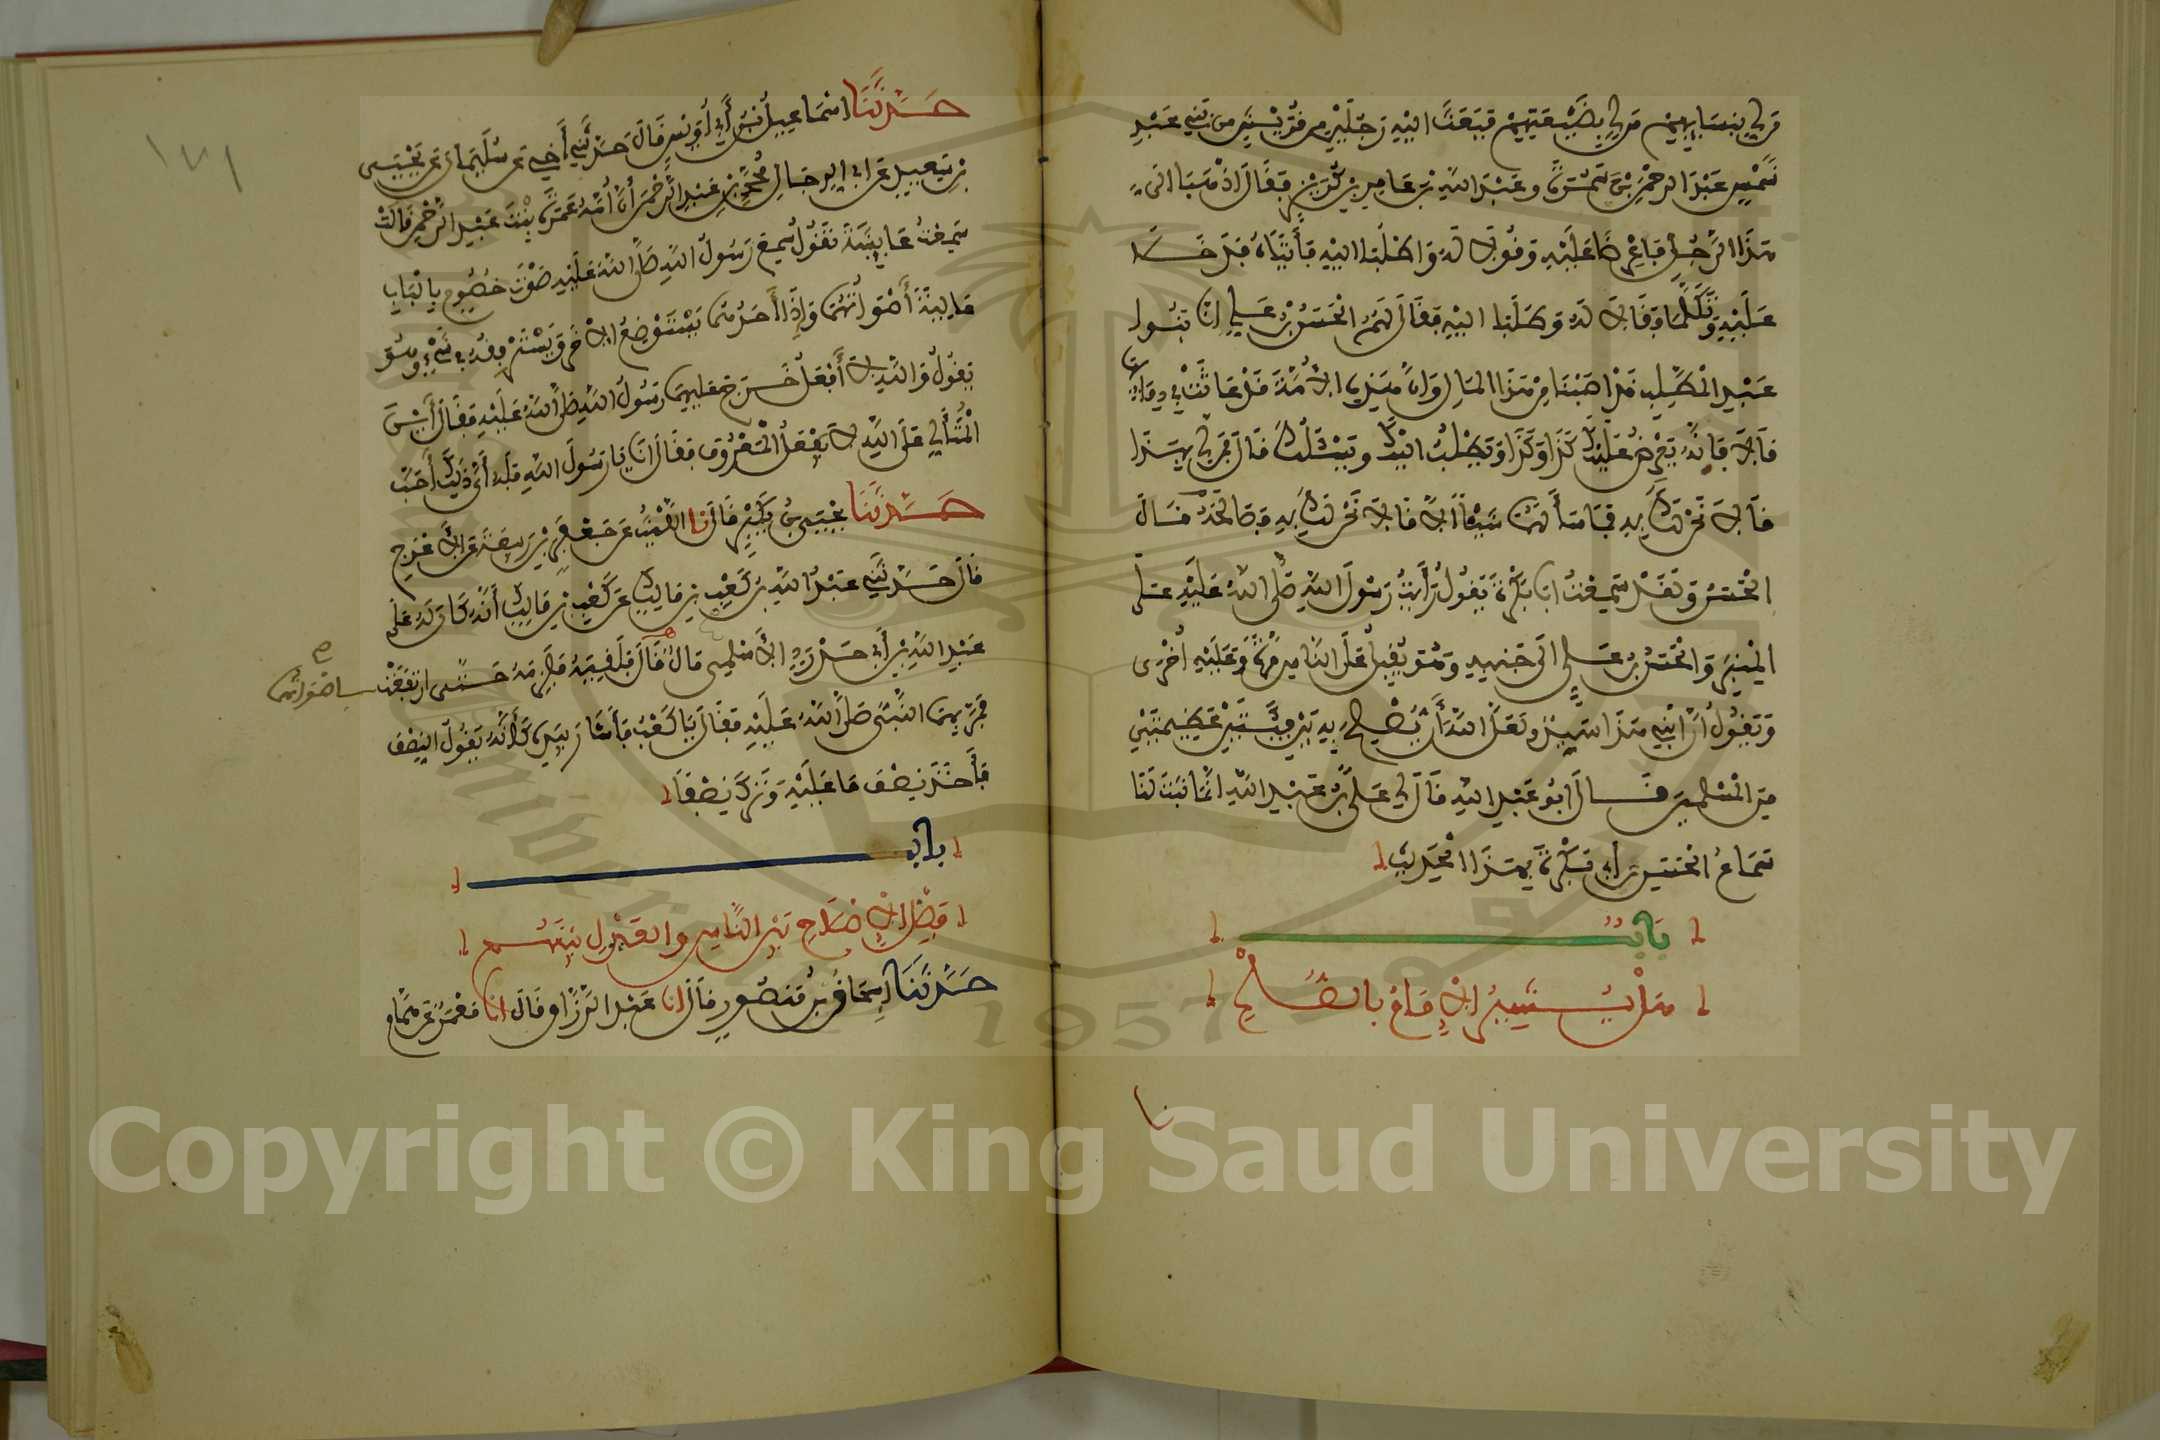 من لي بنسائهم من لي بضيعتهم فبعث اليه رجلين من قريش من بني عبد
شمس عبد الرحمن بن سمرة وعبد الله بن عامر بن كريز فقال اذهبا الى
هذا الرجل فاعرضا عليه وقولا له واطلبا اليه فأتياه فدخلا
عليه وتكلما وقالا له وطلبا اليه فقال لهم الحسن بن علي انا بنوا
عبد المطلب قد اصبنا من هذا المال وان هذه الامة قد عاثت في دمائها
قالا فانه يعرض عليك كذا وكذا ويطلب اليك ويسئلك قال فمن لي بهذا
قالا نحن لك به فما سألهما شيئا الا قالا نحن لك به فصالحه قال
الحسن ولقد سمعت ابا بكرة يقول رأيت رسول الله صلى الله عليه على
المنبر والحسن بن علي الى جنبه وهو يقبل على الناس مرة وعليه اخرى
ويقول ان ابني هذا سيد ولعل الله أن يصلح به بين فئتين عظيمتين
من المسلمين قال ابو عبد الله قال لي علي بن عبد الله انما ثبت لنا
سماع الحسن من أبي بكرة بهذا الحديث
باب
هل يشير الامام بالصلح
١٧١
حدثنا اسماعيل بن أبي أويس قال حدثني أخي عن سليمان عن يحيى
بن سعيد عن ابي الرجال محمد بن عبد الرحمن أن أمه عمرة بنت عبد الرحمن قالت
سمعت عايشة تقول سمع رسول الله صلى الله عليه صوت خصوم بالباب
عالية أصواتهما وإذا أحدهما يستوضع الآخر ويسترفقه في شيء وهو
يقول والله لا أفعل فخرج عليهما رسول الله صلى الله عليه فقال أين
المتألي على الله لا يفعل المعروف فقال انا يا رسول الله فله أي ذلك أحب
حدثنا يحيى بن بكير قال نا الليث عن جعفر بن ربيعة عن الاعرج
قال حدثني عبد الله بن كعب بن مالك عن كعب بن مالك أنه كان له على
عبد الله بن أبي حدرد الاسلمي مال قال فلقيه فلزمه حتى ارتفعت
اصواتهما صح
فمر بهما النبي صلى الله عليه فقال يا كعب فأشار بيده كأنه يقول النصف
فأخذ نصف ما عليه وترك نصفا
باب
فضل الاصلاح بين الناس والعدل بينهم
حدثنا إسحاق بن منصور قال انا عبد الرزاق قال انا معمر عن همام